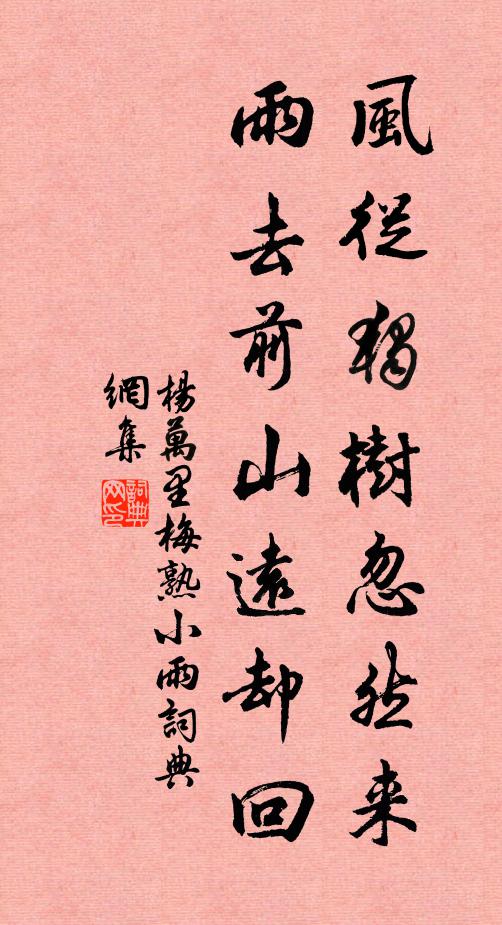 風從獨樹忽然来
雨去前山遠却回
楊萬里梅熟小雨詞典
網集
詞典
网印